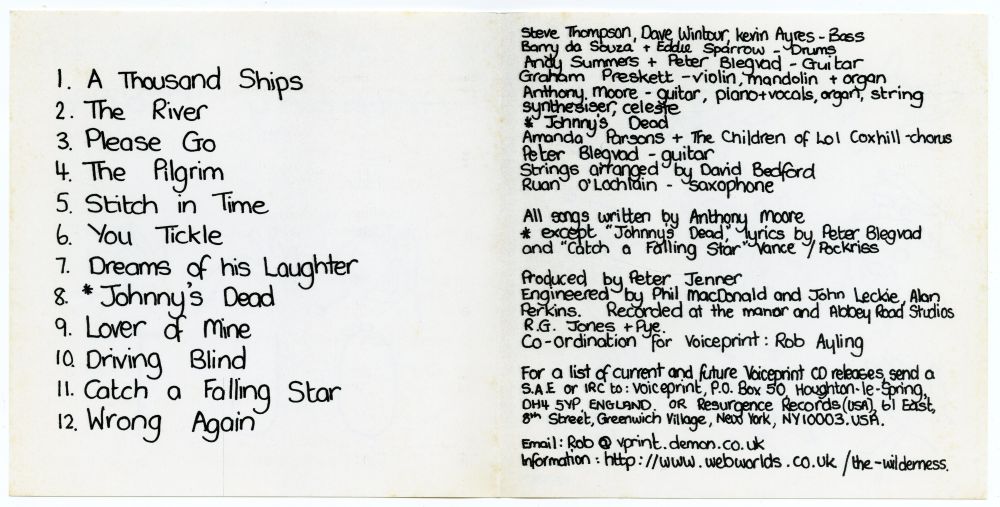 1. A Thousand Ships
2. The River
3. Please Go
4. The Pilgrim
5. Stitch in Time
6. You Tickle
7. Dreams of his Laughter
8. * Johnny's Dead
9. Lover of Mine
10. Driving Blind
11. Catch a Falling Star
12. Wrong Again
Steve Thompson, Dave Wintour, Kevin Ayres - Bass
Barry da Souza + Eddie Sparrow - Drums
Andy Summers + Peter Blegvad - Guitar
Graham Preskett - violin, mandolin + organ
Anthony Moore - guitar, piano+vocals, organ, string
synthesiser, celeste
* Johnny's Dead
Amanda Parsons + The Children of Lol Coxhill - chorus
Peter Blegvad - guitar
Strings arranged by David Bedford
Ruan O'Lochlain - saxophone
All songs written by Anthony Moore
* except "Johnny's Dead" lyrics by Peter Blegvad
and "Catch a Falling Star" Vance / Pockriss
Produced by Peter Jenner
Engineered by Phil MacDonald and John Leckie, Alan
Perkins. Recorded at the manor and Abbey Road Studios
R.G. Jones + Pye.
Co-ordination for Voiceprint: Rob Ayling
For a list of current and future Voiceprint CD releases, send a
S.A.E or IRC to: Voiceprint, P.O. Box 50, Houghton-le-Spring,
DH4 5YP, ENGLAND. OR Resurgence Records (USA), 61 East,
8th Street, Greenwich Village, New York, NY10003. USA.
Email: Rob @ vprint.demon.co.uk
Information: http://www.webworlds.co.uk/the-wilderness.